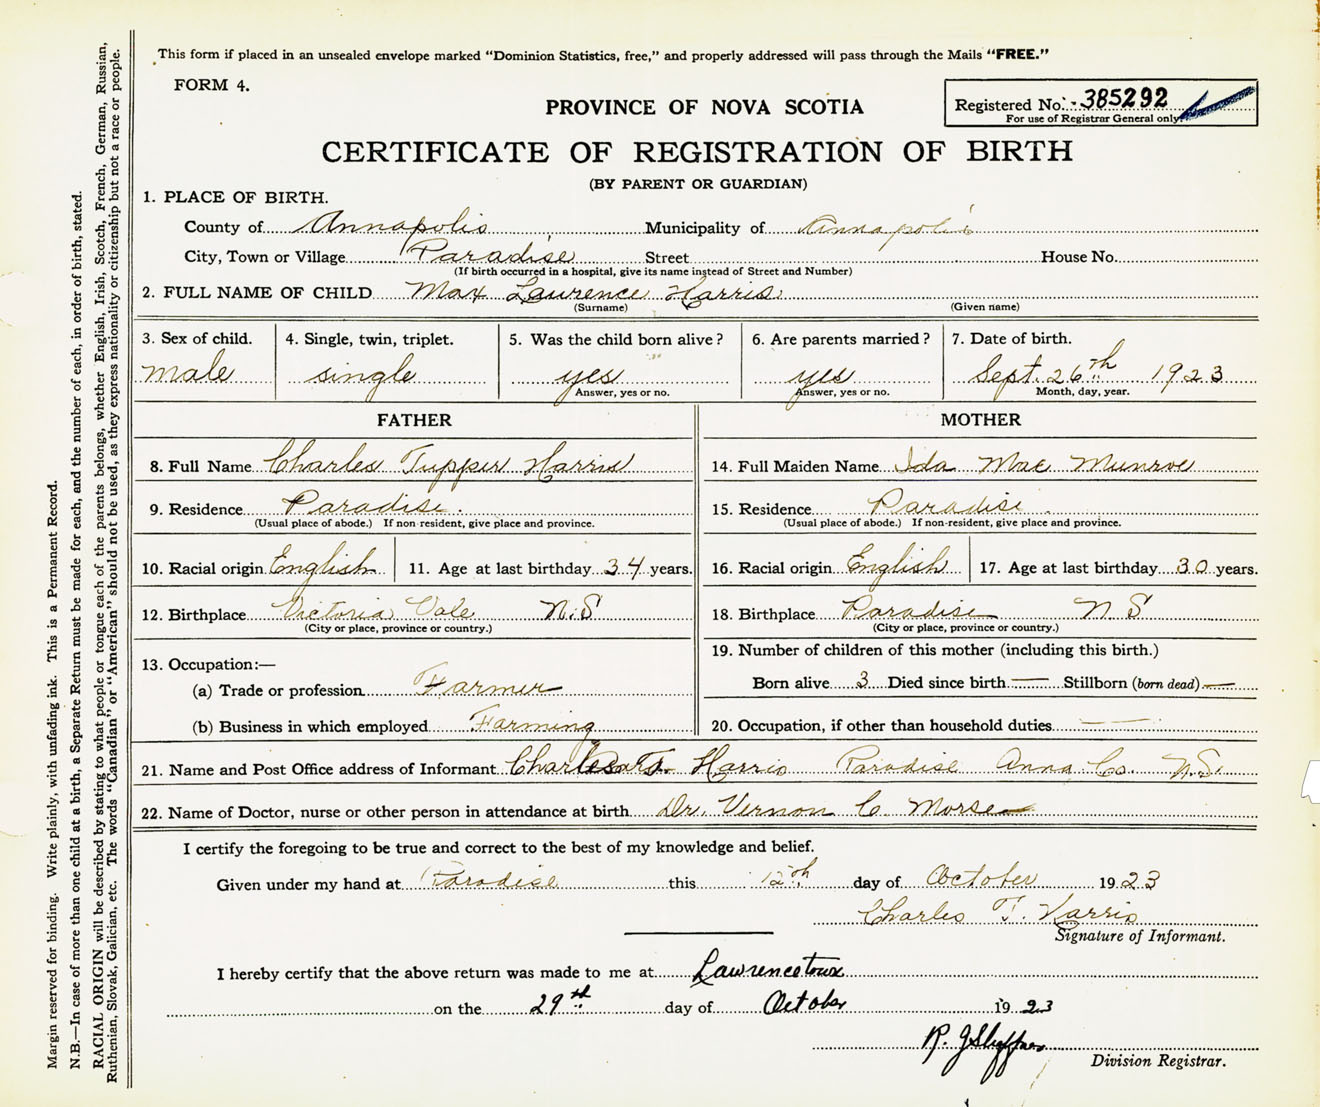 This form if placed in an unsealed envelope marked "Dominion Statistics, free," and properly addressed will pass through the Mails "FREE."
FORM 4.
PROVINCE OF NOVA SCOTIA
Registered No. 385292
For use of Registrar General only.
CERTIFICATE OF REGISTRATION OF BIRTH
(BY PARENT OR GUARDIAN)
1. PLACE OF BIRTH.
County of Annapolis Municipality of Annapolis
City, Town or Village Paradise Street House No.
(If birth occurred in a hospital, give its name instead of Street and Number)
2. FULL NAME OF CHILD Max Lawrence Harris
(Surname) (Given name)
3. Sex of child. 4. Single, twin, triplet. 5. Was the child born alive? 6. Are parents married? 7. Date of birth.
male single yes yes Sept. 26th 1923
Answer, yes or no. Answer, yes or no. Month, day, year.
FATHER
8. Full Name Charles Tupper Harris
9. Residence Paradise.
(Usual place of abode.) If non-resident, give place and province.
10. Racial origin English 11. Age at last birthday 34 years.
12. Birthplace Victoria Vale N.S
(City or place, province or country.)
13. Occupation:—
(a) Trade or profession Farmer
(b) Business in which employed Farming
MOTHER
14. Full Maiden Name Ida Mae Munroe
15. Residence Paradise.
(Usual place of abode.) If non-resident, give place and province.
16. Racial origin English 17. Age at last birthday 30 years.
18. Birthplace Paradise N.S
(City or place, province or country.)
19. Number of children of this mother (including this birth.)
Born alive 3 Died since birth — Stillborn (born dead) —
20. Occupation, if other than household duties —
21. Name and Post Office address of Informant Charles T. Harris Paradise Anna. Co. N.S.
22. Name of Doctor, nurse or other person in attendance at birth Dr. Vernon C Morse
I certify the foregoing to be true and correct to the best of my knowledge and belief.
Given under my hand at Paradise this 12th day of October 1923
Charles T. Harris
Signature of Informant.
I hereby certify that the above return was made to me at Lawrencetown
on the 29th day of October 1923
R. J
Division Registrar.
Margin reserved for binding. Write plainly, with unfading ink. This is a Permanent Record.
N.B.—In case of more than one child at a birth, a Separate Return must be made for each, and the number of each, in order of birth, stated.
RACIAL ORIGIN will be described by stating to what people or tongue each of the parents belongs, whether English, Irish, Scotch, French, German, Russian,
Ruthenian, Slovak, Galician, etc. The words "Canadian" or "American" should not be used, as they express nationality or citizenship but not a race or people.